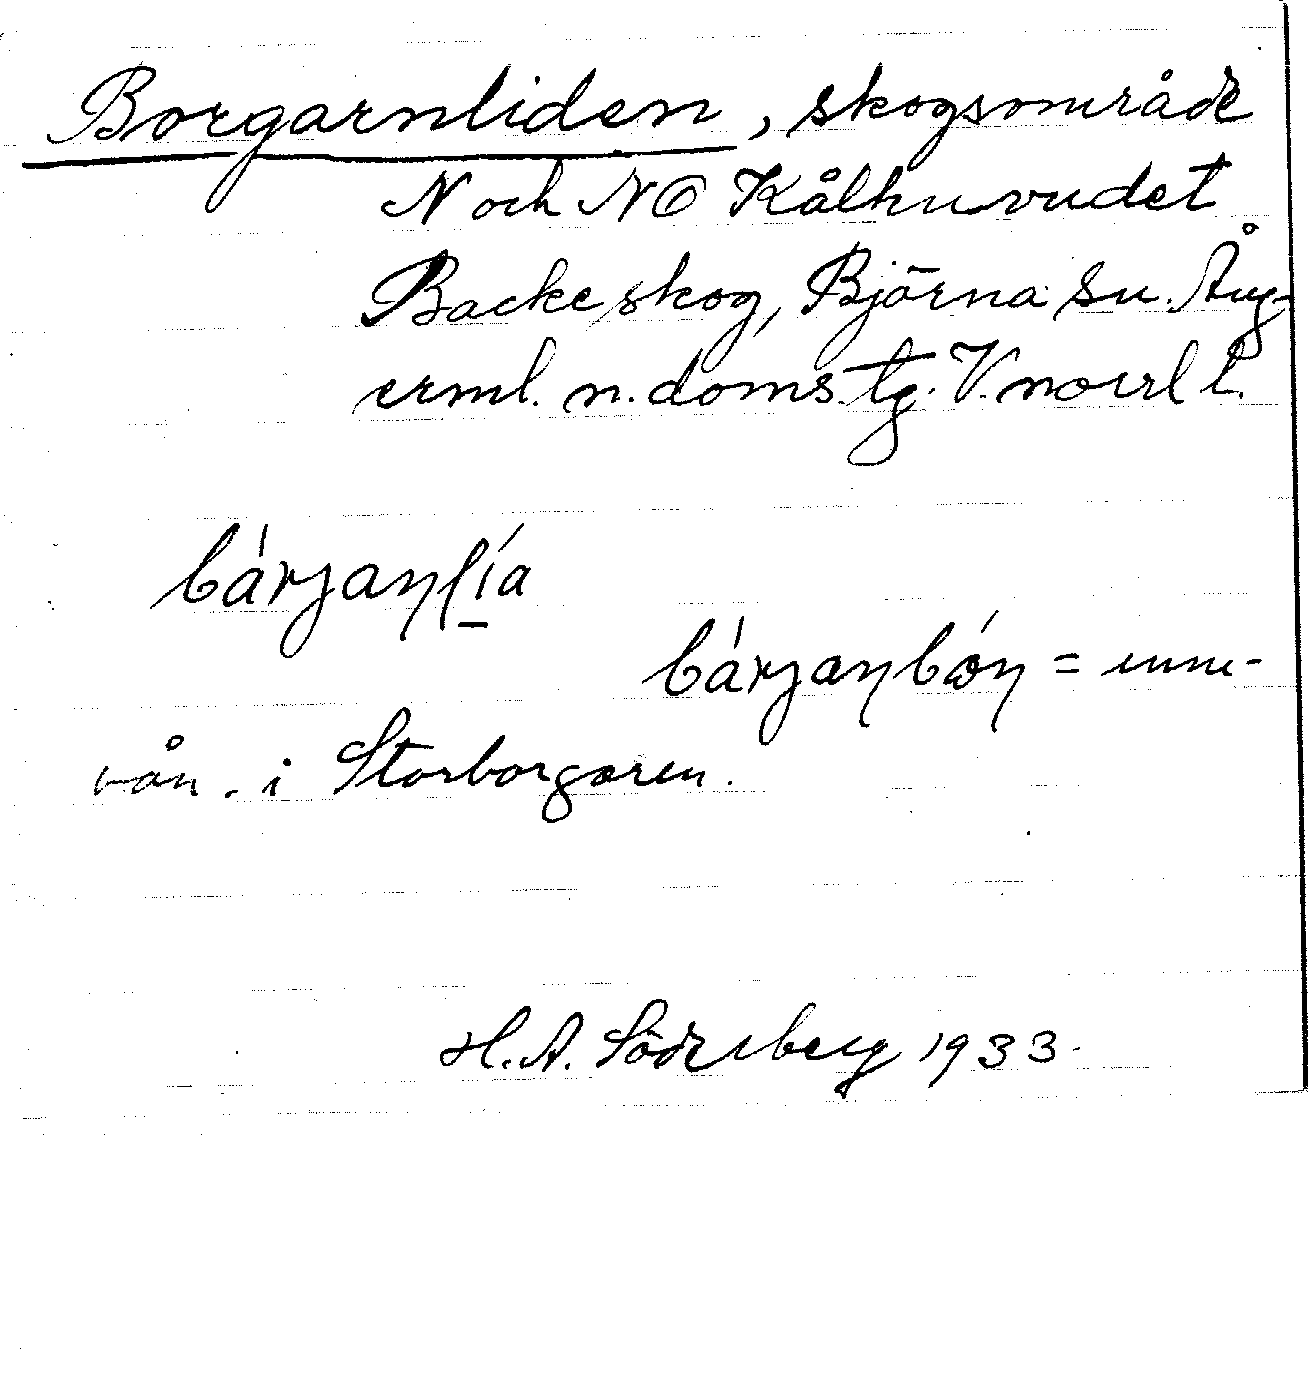 Borgarnliden, skogsområde
N och NO Kålhuvudet
Backe skog, Björna Sn. Ång-
erml. n. doms. tg. V. norrl l.
bárjaŋlía
bárjaŋbón = inne-
vån. i Storborgaren.
H. A. Söderberg 1933.